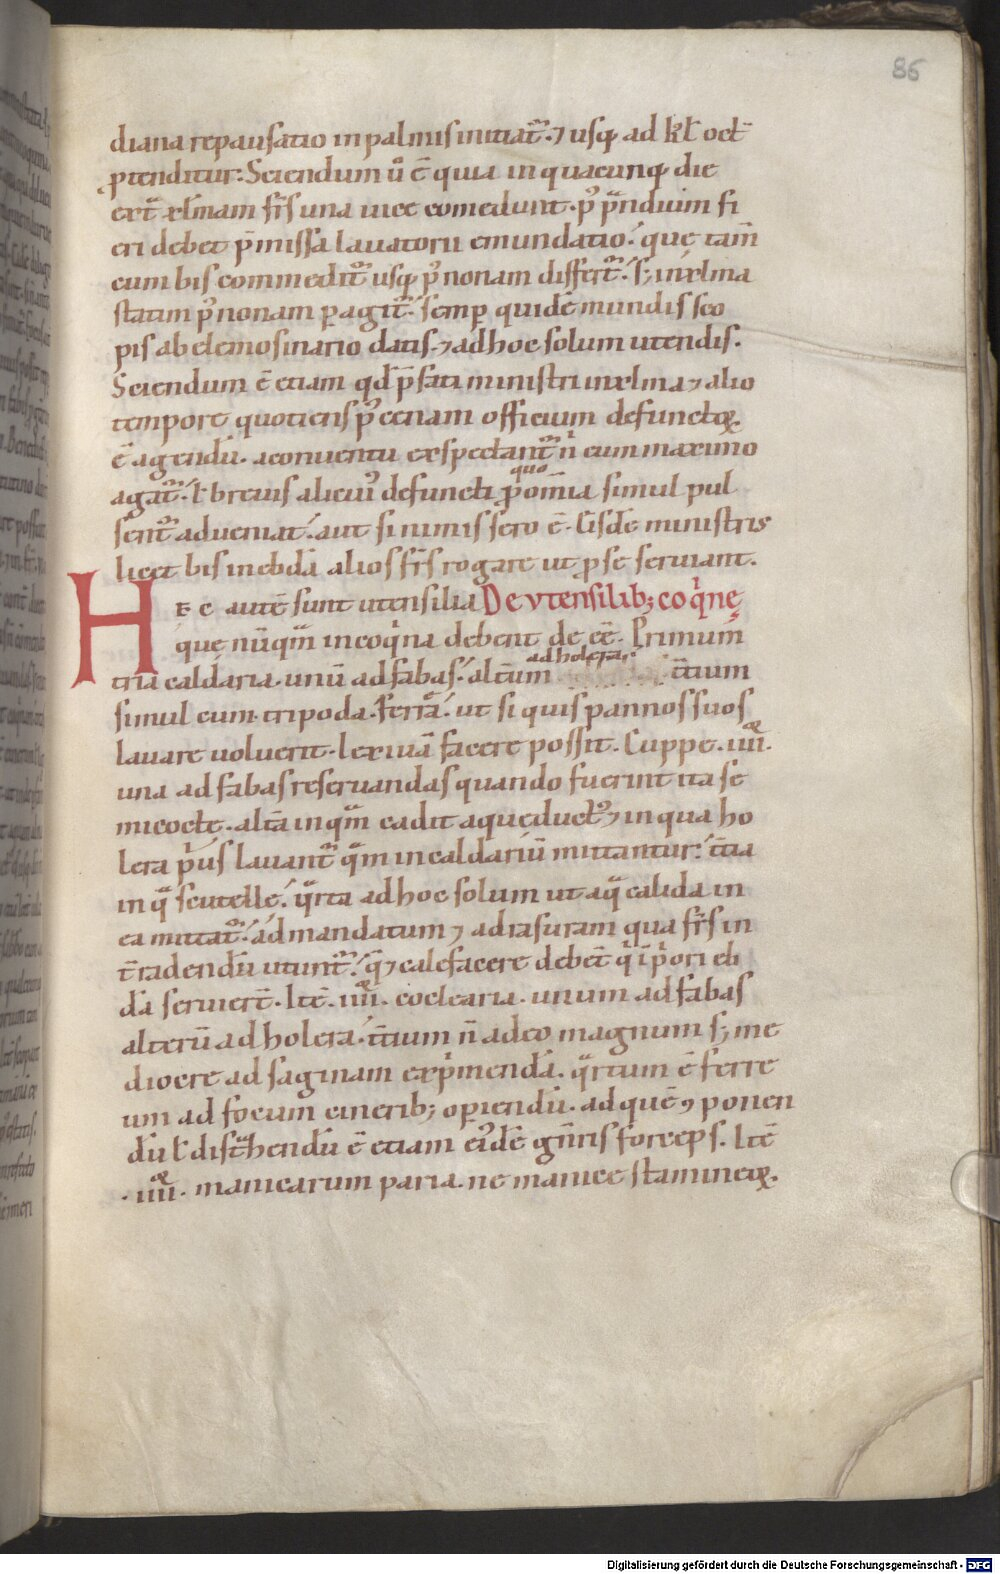 86
diana repausatio in palmis initiat᷑. ⁊ usq; ad kl̅ oct̅
ptenditur. Sciendum u̅ e̅ quia in quacunq; die
ext̅ xl̅mam fr̅s una uice comedunt. p᷒ p̅nduim fi
eri debet p̅missa lauatorii emundatio. quę tam̅
cum bis commedit᷑ usq; p᷒ nonam differt᷑. s; in xl̅ma
statim p᷒ nonam pagit᷑. semp quide̅ mundis sco
pis ab elemosinario datis. ⁊ ad hoc solum utendis.
Sciendum e̅ etiam qd̅ p̅fati ministri in xl̅ma ⁊ alio
tempore quotiens p᷒ cenam officium defunctoꝝ
e̅ agendu̅. a conuentu exspectant᷑ n̅ cum maximo
agat᷑. l̅ breuis alicui᷒ defuncti p quo om̅ia simul pul
sent᷑ adueniat. aut si nimis sero e̅. Eisde̅ ministris
licet bis in ebda̅ alios fr̅s rogare ut p se seruiant.
HEC aute̅ sunt utensilia De vtensilib; coqͥnę
que nu̅qͣm in coqͥna debent de e̅e. Primum
tria caldaria. unu̅ ad fabas. alt̅um ad holera. t̅tium
simul cum tripoda ferrea. ut si quis pannos suos
lauare uoluerit. lexiua̅ facere possit. Cuppe. iiii.
una ad fabas reseruandas quando fuerint ita se
micocte. alt̅a in qͣm cadit aqueduct᷒ ⁊ in qua ho
lera pͥus lauant᷑ qͣm in caldariu̅ mittantur. t̅tia
in qͣ scutelle. qͣrta ad hoc solum ut aqͣ calida in
ea mittat᷑. ad mandatum ⁊ ad rasuram qua fr̅s in
t̅radendu̅ utunt᷑. qͣ̅ ⁊ calefacere debe̅t qͥ i̅ pͥori eb
da̅ seruiere̅t. Ite̅. iiii. coclearia. unum ad fabas
alteru̅ ad holera. t̅tium n̅ adeo magnum s; me
diocre ad saginam expͥmenda̅. qͣrtum e̅ ferre
um ad focum cinerib; opiendu̅. ad que̅ ⁊ ponen
du̅ l̅ dist̅hendu̅ e̅ etiam ei᷒de̅ gn̅ris forceps. Ite̅
.iiii. manicarum paria. ne manice stamineaꝝ.
Digitalisierung gefördert durch die Deutsche Forschungsgemeinschaft - DFG